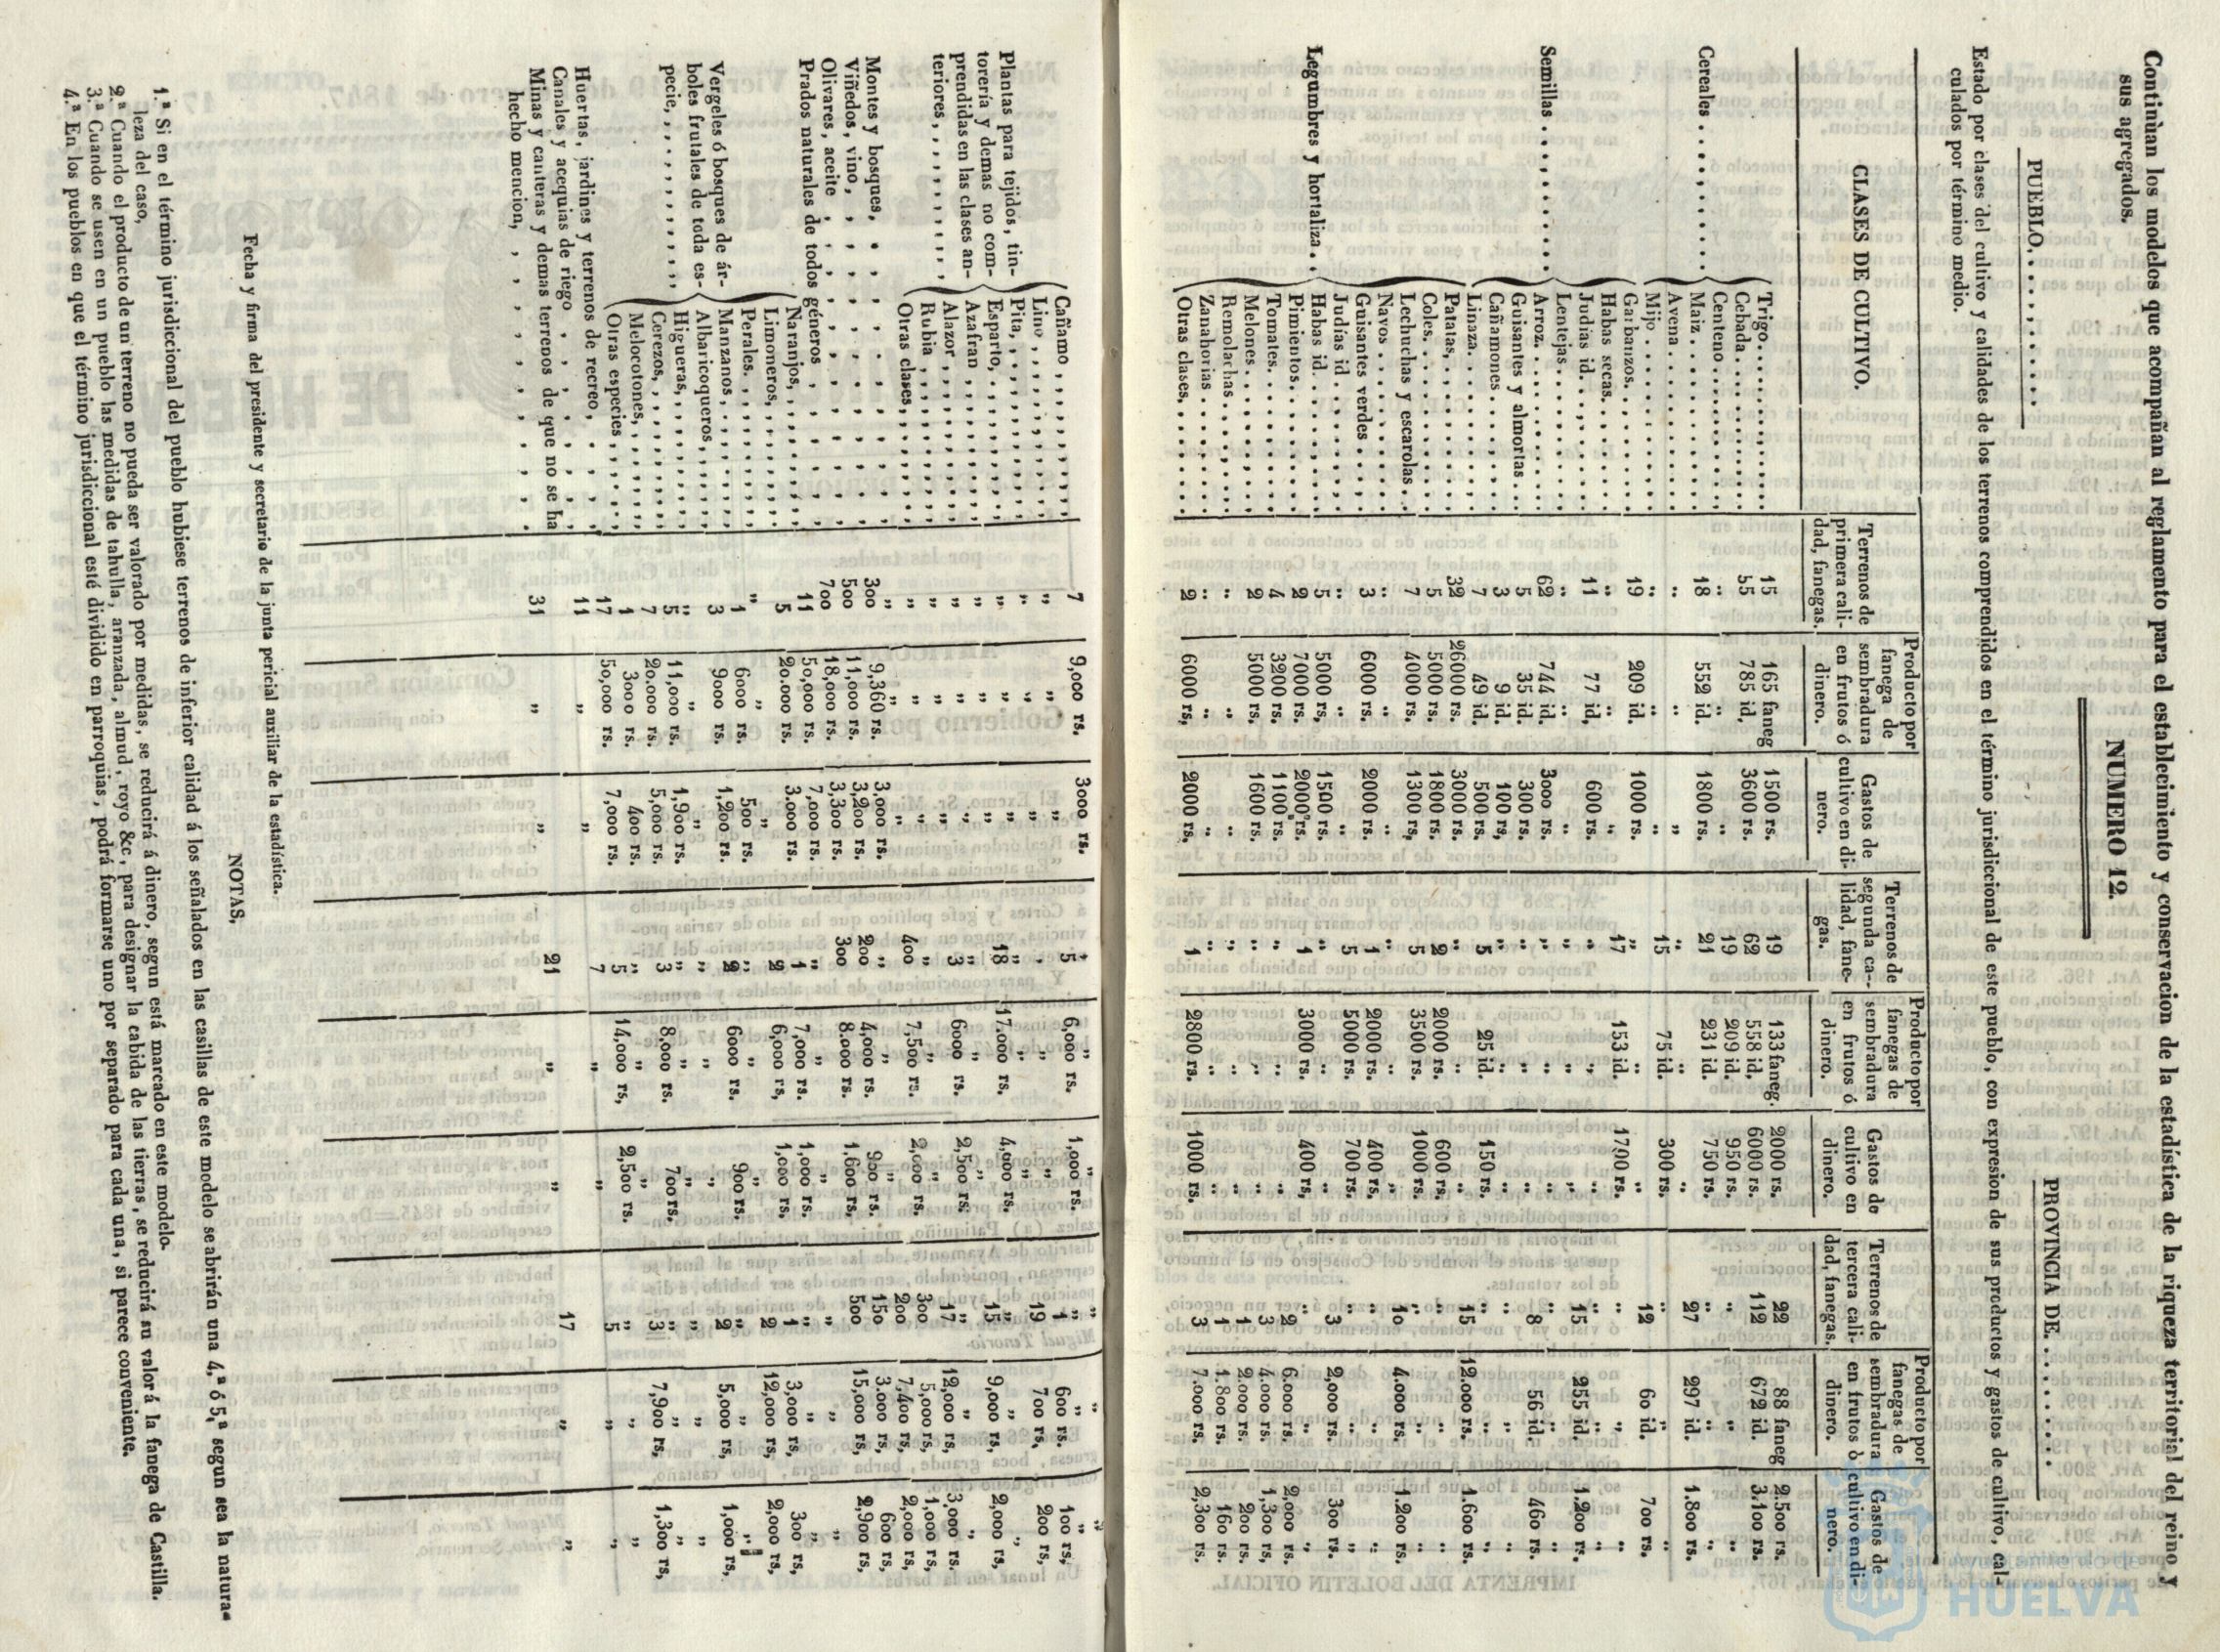 Continùan los modelos que acompañan al reglamento para el establecimiento y conservacion de la estadística de la riqueza territorial del reino y
sus agregados.
NUMERO 12.
PUEBLO. . . . . . . . . . PROVINCIA DE. . . . . . . .
Estado por clases del cultivo y calidades de los terrenos comprendidos en el término jurisdiccional de este pueblo, con expresion de sus productos y gastos de cultivo, calculados por término medio.
CLASES DE CULTIVO.
Terrenos de primera calidad, fanegas.
Producto por fanega de sembradura en frutos ó dinero.
Gastos de cultivo en dinero.
Terrenos de segunda calidad, fanegas.
Producto por fanegas de sembradura en frutos ó dinero.
Gastos de cultivo en dinero.
Terrenos de tercera calidad, fanegas.
Producto por fanegas de sembradura en frutos ò dinero.
Gastos de cultivo en dinero.
Cereales
Trigo 15 165 faneg 1500 rs. 19 133 faneg. 2000 rs. 22 88 faneg 2.500 rs.
Cebada 55 785 id, 3600 rs. 62 558 id, 6000 rs. 112 672 id. 3.100 rs.
Centeno ,, ,, ,, 19 209 id. 950 rs. ,, ,, ,,
Maiz 18 552 id. 1800 rs. 21 231 id. 750 rs. ,, ,, ,,
Avena ,, ,, ,, ,, ,, ,, 27 297 id. 1.800 rs.
Mijo ,, ,, ,, 15 75 id. 300 rs. ,, ,, ,,
Semillas
Garbanzos. 19 209 id. 1000 rs. ,, ,, ,, 12 60 id. 700 rs.
Habas secas. ,, ,, ,, 17 153 id. 1700 rs. ,, ,, ,,
Judias id. 11 77 id, 600 rs. ,, ,, ,, ,, ,, ,,
Lentejas. ,, ,, ,, ,, ,, ,, 15 255 id. 1.200 rs.
Arroz. 62 744 id. 3000 rs. ,, ,, ,, ,, ,, ,,
Guisantes y almortas 5 35 id. 300 rs. ,, ,, ,, 8 56 id. 460 rs.
Cañamones 3 9 id. 100 rs, ,, ,, ,, ,, ,, ,,
Linaza. 7 49 id. 500 rs. 5 25 id. 150 rs. ,, ,, ,,
Legumbres y hortaliza
Patatas, 32 26000 rs. 3000 rs. ,, ,, ,, 15 12.000 rs. 1.600 rs.
Coles. 5 5000 rs. 1800 rs. 2 2000 rs. 600 rs. ,, ,, ,,
Lechuchas y escarolas 7 4000 rs, 1300 rs, 5 3500 rs. 1000 rs. ,, ,, ,,
Navos ,, ,, ,, ,, ,, ,, 10 4.000 rs. 1.200 rs.
Guisantes verdes 3 6000 rs. 2000 rs. 1 2000 rs. 400 rs. ,, ,, ,,
Judias id ,, ,, ,, 5 5000 rs. 700 rs. ,, ,, ,,
Habas id. 5 5000 rs. 1500 rs. ,, ,, ,, 3 2,000 rs. 300 rs.
Pimientos. 2 7000 rs, 2000 rs. 1 3000 rs. 400 rs, ,, ,, ,,
Tomates. 4 3200 rs. 1100 rs. ,, ,, ,, 2 6.000 rs. 2,000 rs.
Melones 2 5000 rs, 1600 rs. ,, ,, ,, 3 4.000 rs. 1,300 rs.
Remolachas ,, ,, ,, ,, ,, ,, 1 2.000 rs. 200 rs.
Zanahorias ,, ,, ,, ,, ,, ,, 1 1.800 rs. 160 rs.
Otras clases. 2 6000 rs, 2000 rs. 1 2800 rs. 1000 rs. 3 7.000 rs. 2,300 rs.
Plantas para tejidos, tintorería y demas no comprendidas en las clases anteriores
Cañamo 7 9,000 rs, 3000 rs. 5 6,000 rs. 1,000 rs. ,, ,, ,,
Lino ,, ,, ,, ,, ,, ,, 1 600 rs. 100 rs,
Pita, ,, ,, ,, ,, ,, ,, 19 700 rs, 200 rs,
Esparto, ,, ,, ,, 18 17.000 rs. 4,000 rs. ,, ,, ,,
Azafran ,, ,, ,, ,, ,, ,, 15 9,000 rs, 2,000 rs,
Alazor ,, ,, ,, 3 6000 rs. 2,500 rs. ,, ,, ,,
Rubia ,, ,, ,, ,, ,, ,, 17 12,000 rs, 3,000 rs.
Otras clases, ,, ,, ,, 400 7,500 rs. 2,000 rs, 300 5,000 rs, 1,000 rs,
Montes y bosques, 300 9,360 rs. 3,000 rs. ,, ,, ,, 200 7,400 rs, 2,000 rs,
Viñedos, vino, 500 11,000 rs. 3,200 rs. 200 4,000 rs. 900 rs. 150 3.000 rs, 600 rs,
Olivares, aceite 700 18,000 rs. 3,300 rs. 300 8.000 rs. 1,600 rs, 500 15,000 rs, 2,900 rs,
Prados naturales de todos géneros 11 50,000 rs. 7,000 rs. ,, ,, ,, ,, ,, ,,
Vergeles ó bosques de árboles frutales de toda especie,
Naranjos, 5 20.000 rs. 3.000 rs. 1 7,000 rs. 1,000 rs, ,, ,, ,,
Limoneros, ,, ,, ,, 2 6,000 rs, 1,000 rs, 1 3,000 rs, 300 rs,
Perales. 1 6000 rs. 500 rs. ,, ,, ,, 2 12,000 rs, 2,000 rs,
Manzanos 3 9000 rs. 1,200 rs. 2 6000 rs. 900 rs, ,, ,, ,,
Albaricoqueros ,, ,, ,, ,, ,, ,, 2 5,000 rs, 1,000 rs,
Higueras, 5 11,000 rs. 1,900 rs. ,, ,, ,, ,, ,, ,,
Cerezos, 7 20.000 rs. 5,000 rs. 3 8,000 rs. 700 rs. ,, ,, ,,
Melocotones, 1 3000 rs. 400 rs. ,, ,, ,, 3 7,900 rs, 1,300 rs,
Otras especies 17 50,000 rs. 7,000 rs. 5 14,000 rs, 2,500 rs. ,, ,, ,,
Huertas, jardines y terrenos de recreo, 11 ,, ,, 7 ,, ,, 5 ,, ,,
Canales y acequias de riego
Minas y canteras y demas terrenos de que no se ha hecho mencion, 31 ,, ,, 21 ,, ,, 17 ,, ,,
Fecha y firma del presidente y secretario de la junta pericial auxiliar de la estadística.
NOTAS,
1.ª Si en el término jurisdiccional del pueblo hubiese terrenos de inferior calidad á los señalados en las casillas de este modelo se abrirán una 4,ª ó 5,ª segun sea la natura-
leza del caso,
2.ª Cuando el producto de un terreno no pueda ser valorado por medidas, se reducirá á dinero, segun está marcado en este modelo.
3.ª Cuando se usen en un pueblo las medidas de tahulla, aranzada, almud, royo &c, para designar la cabida de las tierras, se reducirá su valor á la fanega de Castilla.
4.ª En los pueblos en que el término jurisdiccional esté dividido en parroquias, podrá formarse uno por separado para cada una, si parece conveniente.
HUELVA